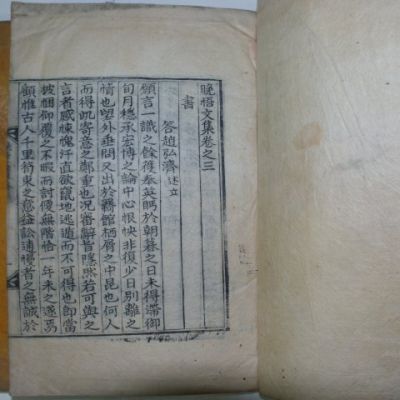 晩悟文集卷之三
書
答趙弘濟述立
願言一識之餘獲奉英眄於朝暮之日未得滯御
旬月穩承宏博之論中心悵怏非復少日別離之
情也望外垂問又出於舊館栖屑之中昆也何人
而得此寄意之鄭重也況審辭旨隱然若可與之
言者感悚愧汗直欲竄地逃遁而不可得也卽當
披悃仰覆之不暇而討便無階恰一年未之遂焉
顧惟古人千里命來之意益訟逋慢者之無誠於